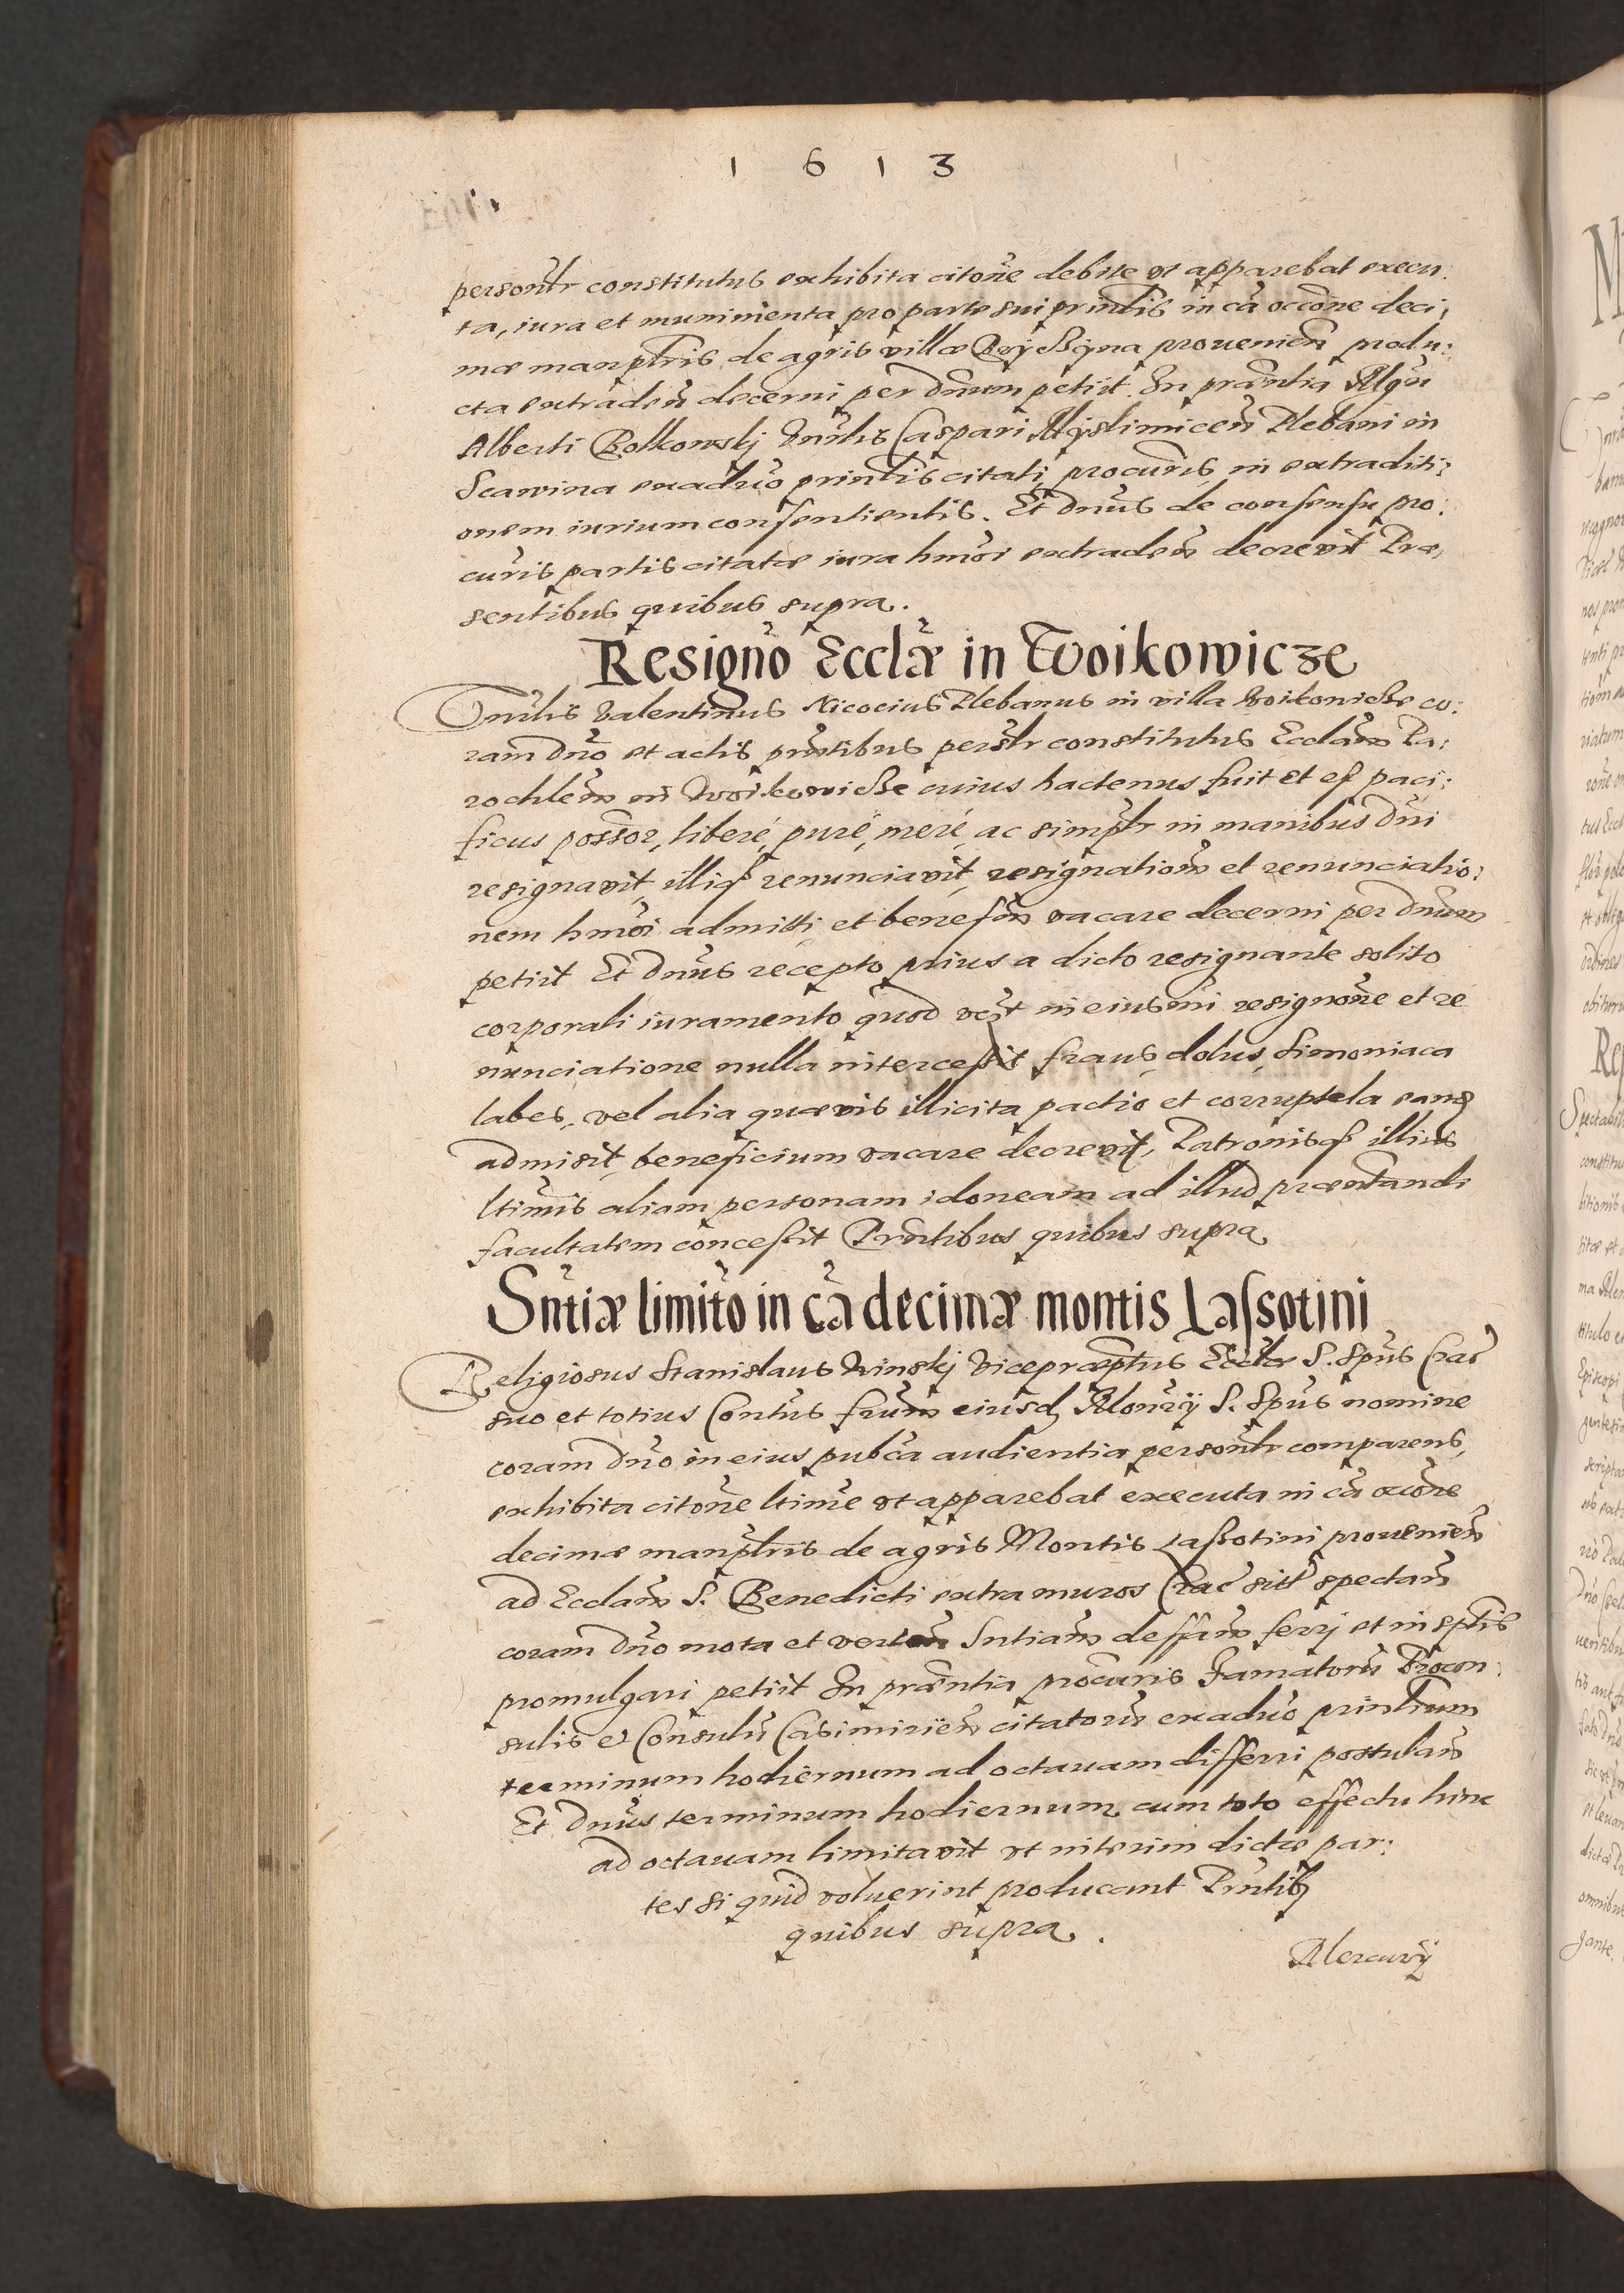 1613
personlr constitutus exhibita citone debite ut apparebat execu
ta, iura et munimenta pro parte sui prinlis in ca occone deci:
mæ manplris de agris villæ provenien produ:
cta extraden decerni per dnum petiit. In præntia Mgri
Alberti Bolkowskj Vnrlis Caspari Myslimicen Plebani in
Scawina exadvo prinlis citati procuris in extraditi:
onem iurium consentientis. Et dnus de consensu pro:
curis partis citatæ iura hmoi extraden decrevit Præ
sentibus quibus supra.
Resigno Ecclæ in Woikowicze
Vnrlis Valentinus Nicocius Plebanus in villa Woikowicze co:
ram dno et actis prntibus persnlr constitutus Ecclam Pa:
rochlem in Woikowicze cuius hactenus fuit et est paci:
ficus possor, liberè, purè, merè, ac simplr in manibus dni
resignavit, illiq renunciavit, resignationem et renunciatio:
nem hmoi admitti et benefm vacare decerni per dnum
petiit Et dnus recepto prius a dicto resignante solito
corporali iuramento quod in eiusmi resignone et re
nunciatione nulla intercessit fraus, dolus, simoniaca
labes, vel alia quævis illicita pactio et corruptela eanq
admisit, beneficium vacare decrevit, Patronisq illius
ltimis aliam personam idoneam ad illud præntandi
facultatem concessit Prntibus quibus supra
Sntiæ limito in ca decimæ montis Lassotini
Religiosus Stanislaus Winskj Vicepræptus Ecclæ S. Spus Crac
suo et totius Contus frum eiusd Monrij S. Spus nomine
coram dno in eius pubca audientia personlr comparens,
exhibita citone ltime ut apparebat executa in ca occone
decimæ manplris de agris Montis Lassotini provenien
ad Ecclam S. Benedicti extra muros Crac sit spectan
coram dno mota et verten Sntiam deffam ferrj et in sptis
promulgari petiit In præntia procuris Famatoru Procon:
sulis et Consulu Casimirien citatoru exadvo prinlium
terminum hodiernum ad octavam differri postulan
Et dnus terminum hodiernum cum toto effectu hinc
ad octavam limitavit ut interim dictæ par:
tes si quid voluerint producant Prntib
quibus supra.
Mercurij